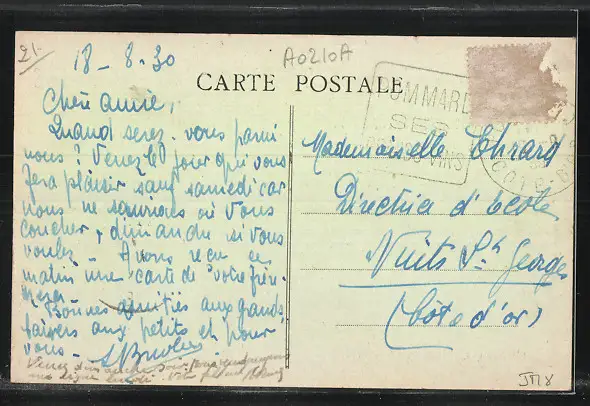 21-
18-8-30
A0210A
CARTE POSTALE
POMMARD
SES
VINS
CÔTE-D'OR
Chère amie,
Quand serez-vous parmi
nous? Venez le jour qui vous
fera plaisir sauf samedi car
nous ne saurions où vous
coucher, dimanche si vous
voulez - Avons reçu ce
matin une carte de votre frère
Bonnes amitiés aux grands,
baisers aux petits et pour
vous -
Venez
Mademoiselle
Directrice d'école
Nuits St. Georges
(Côte d'or)